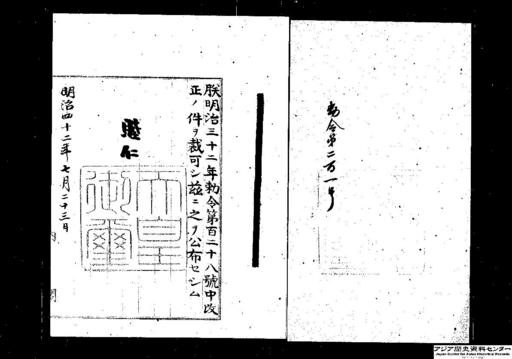 勅令第二百一号
朕明治三十二年勅令第百二十八號中改
正ノ件ヲ裁可シ茲ニ之ヲ公布セシム
睦仁
天皇御璽
明治四十二年七月二十三日
内
閣
アジア歴史資料センター
Japan Center for Asian Historical Records